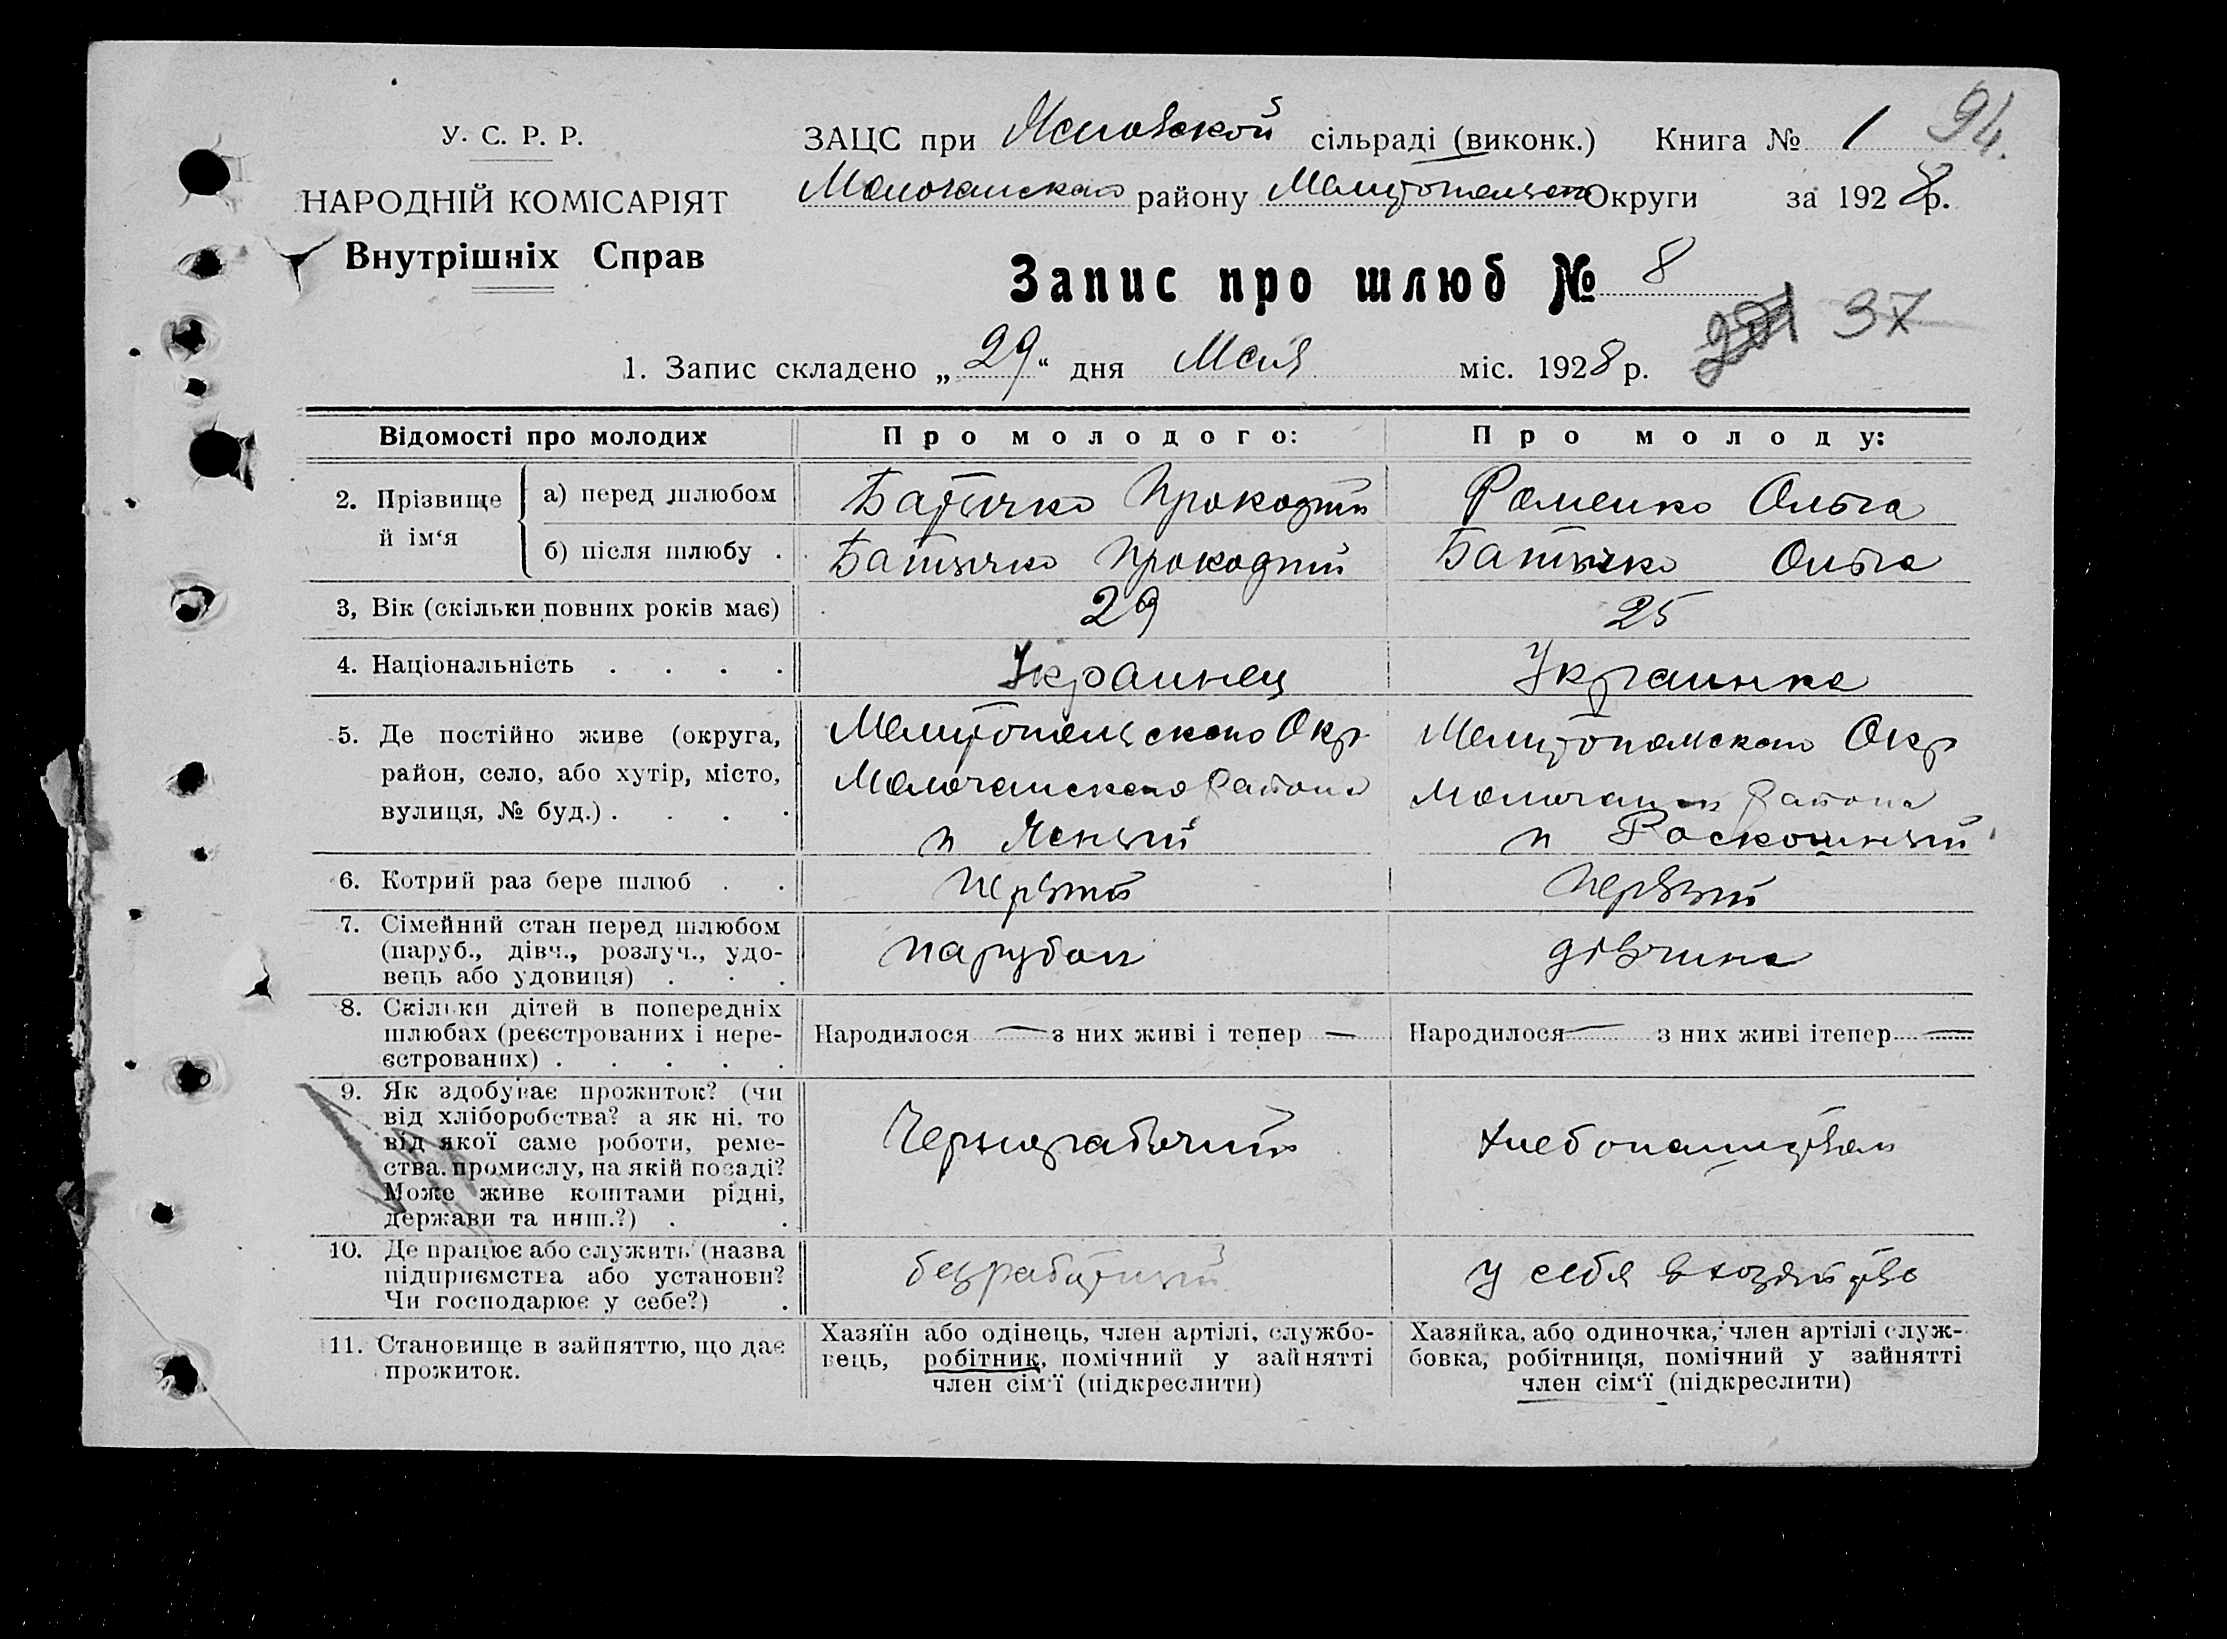 94.
У. С. Р. Р.
ЗАЦС при Ясновской сільраді (виконк.) Книга № 1
НАРОДНІЙ КОМІСАРІЯТ
Молочанского району Мелитопольск Округи за 1928 р.
Внутрішніх Справ
Запис про шлюб № 8
37
1. Запис складено „29“ дня Мая міс. 1928 р.
Відомості про молодих
Про молодого:
Про молоду:
2. Прізвище й ім‘я
а) перед шлюбом
Батычко
Роменко Ольга
б) після шлюбу
Батычко
Батычко Ольга
3, Вік (скільки повних років має)
29
25
4. Національність
Украинец
Украинка
5. Де постійно живе (округа,
район, село, або хутір, місто,
вулиця, № буд.)
Мелитопольского Окр
Молочанского Района
п Ясный
Мелитопольского Окр
Молочанск Района
п Роскошный
6. Котрий раз бере шлюб
Первый
Первый
7. Сімейний стан перед шлюбом
(паруб., дівч., розлуч., удо-
вець або удовиця)
парубок
дівчина
8. Скільки дітей в попередніх
шлюбах (реєстрованих і нере-
єстрованих)
Народилося — з них живі і тепер —
Народилося — з них живі ітепер —
9. Як здобуває прожиток? (чи
від хліборобства? а як ні, то
від якої саме роботи, реме-
ства. промислу, на якій посаді?
Може живе коштами рідні,
держави та инш.?)
Чернорабочий
хлебопашеством
10. Де працює або служить (назва
підприємства або установи?
Чи господарює у себе?)
безработный
у себя в хозяйстве
11. Становище в зайняттю, що дає
прожиток.
Хазяїн або одінець, член артілі, службо-
вець, робітник, помічний у зайнятті
член сім‘ї (підкреслити)
Хазяйка, або одиночка, член артілі служ-
бовка, робітниця, помічний у зайнятті
член сім‘ї (підкреслити)